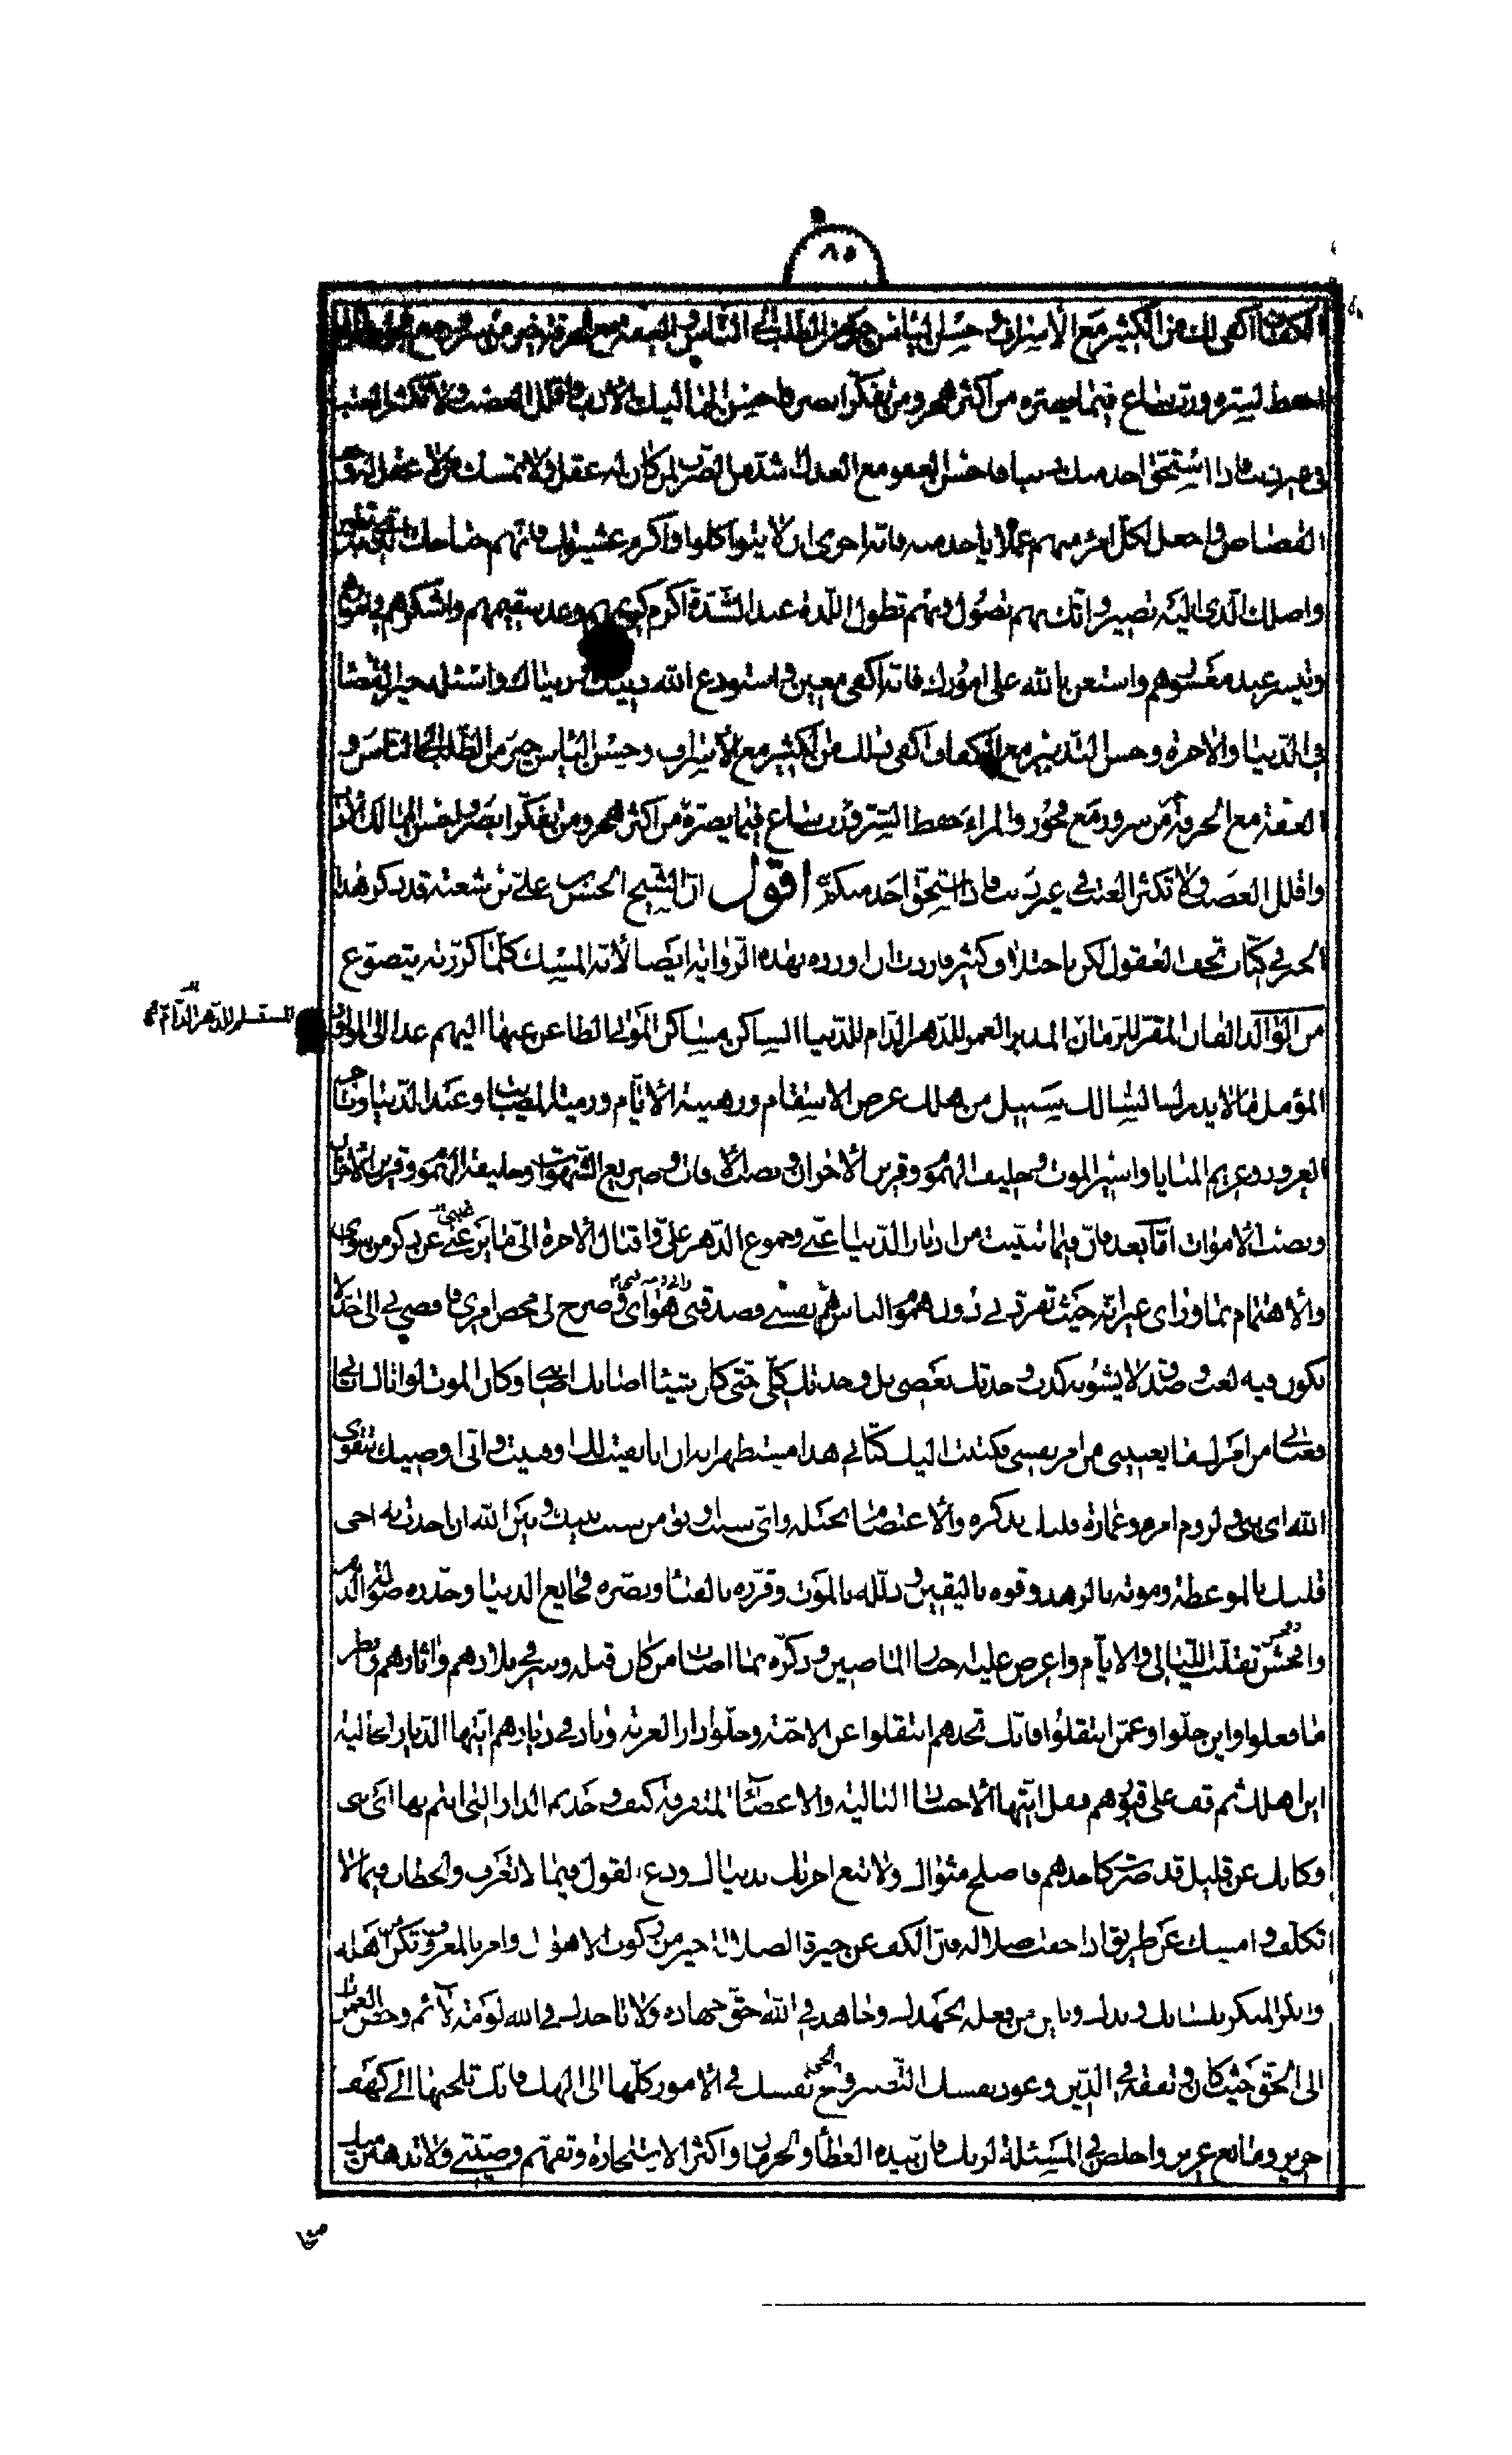 ٨٥
الكفاف اكفى لك من الكثير مع الاسراف و حسن الياس خير من الطلب الى الناس و العفة مع الحرفة خير من سرور مع فجور و المرء
احفظ لسره و رب ساع فيما يضره من اكثر هجر و من تفكر ابصر و احسن للمماليك الادب و اقلل الغضب و لا تكثر العتب
في غير ذنب فاذا استحق احد منك ذنبا فاحسن العفو مع العدل اشد من الضرب لمن كان له عقل و لا تمسك من لا عقل له و خف
القصاص و اجعل لكل امرء منهم عملا ياخذ منه فانه احرى ان لا يتواكلوا و اكرم عشيرتك فانهم جناحك الذي به تطير
و اصلك الذي اليه تصير و انك بهم تصول و بهم تطول اللذة عند الشدة اكرم كريمهم و عد سقيمهم و اشركهم في امورهم
و تيسر عند معسورهم و استعن بالله على امورك فانه اكفى معين و استودع الله دينك و دنياك و اسئله خير القضا
في الدنيا و الاخرة و حسن التدبير مع الكفاف اكفى لك من الكثير مع الاسراف و حسن الياس خير من الطلب الى الناس و
العفة مع الحرفة خير من سرور مع فجور و المرء احفظ لسره و رب ساع فيما يضره من اكثر هجر و من تفكر ابصر و احسن للمماليك الادب
و اقلل الغضب و لا تكثر العتب في غير ذنب فاذا استحق احد منك اقول ان الشيخ الحسن بن علي بن شعبة قد ذكر هذا
الخبر في كتاب تحف العقول لكن باختلاف كثير فاردت ان اورده بهذه الرواية ايضا لانه المسك كلما كررته يتضوع
من الوالد الفان المقر للزمان المدبر العمر للدهر الذام للدنيا الساكن مساكن الموتى الظاعن عنها اليهم غدا الى الولد
المستسلم للدهر الذام
المؤمل ما لا يدرك السالك سبيل من هلك غرض الاسقام و رهينة الايام و رمية المصائب و عبد الدنيا و تاجر
الغرور و غريم المنايا و اسير الموت و حليف الهموم و قرين الاحزان و نصب الافات و صريع الشهوات و خليفة
و نصب الاموات اما بعد فان فيما تبينت من ادبار الدنيا عني و جموح الدهر علي و اقبال الاخرة الي ما يزعني عن ذكر من سوى
و الاهتمام بما وراي غير انه حيث تفرد بي دون هموم الناس هم نفسي فصدقني هواي و صرح لي محض امري فافضى بي الى جد لا
يكون فيه لعب و صدق لا يشوبه كذب وجدتك بعضي بل وجدتك كلي حتى كان شيئا اصابك اصابني و كان الموت لو اتاك اتاني
فعناني من امرك ما يعنيني من امر نفسي فكتبت اليك كتابي هذا مستظهرا به ان انا بقيت لك او فنيت و اني اوصيك بتقوى
الله اي بني و لزوم امره و عمارة قلبك بذكره و الاعتصام بحبله و اي سبب اوثق من سبب بينك و بين الله ان اخذت به احي
قلبك بالموعظة و موته بالزهد و قوه باليقين و ذلله بالموت و قرره بالفنا و بصره فجايع الدنيا و حذره صولة الدهر
و فحش تقلب الليالي و الايام و اعرض عليه اخبار الماضين و ذكره بما اصاب من كان قبله و سر في بلادهم و اثارهم و انظر
ما فعلوا و اين حلوا و عمن انتقلوا فانك تجدهم انتقلوا عن الاحبة و حلوا دار الغربة و ناد في ديارهم ايتها الديار الخالية
اين اهلك ثم قف على قبورهم فقل ايتها الاجساد البالية و الاعضاء المتفرقة كيف وجدتم الدار التي انتم بها اي بني
و كانك عن قليل قد صرت كاحدهم فاصلح مثواك و لا تبع اخرتك بدنياك و دع القول فيما لا تعرف و الخطاب فيما لا
تكلف و امسك عن طريق اذا خفت ضلاله فان الكف عن حيرة الضلالة خير من ركوب الاهوال و امر بالمعروف تكن من اهله
و انكر المنكر بلسانك و يدك و باين من فعله بجهدك و جاهد في الله حق جهاده و لا تاخذك في الله لومة لائم و خض الغمرات
الى الحق حيث كان و تفقه في الدين و عود نفسك التصبر و الجئ نفسك في الامور كلها الى الهك فانك تلجئها الى كهف
حريز و مانع عزيز و اخلص في المسئلة لربك فان بيده العطاء و الحرمان و اكثر الاستخارة و تفهم وصيتي و لا تذهبن